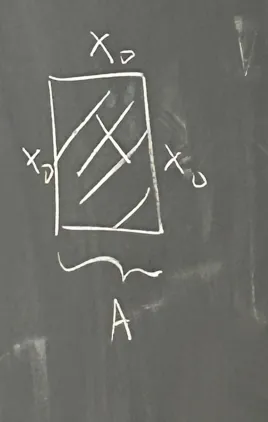 X₀
X₀ X X₀
A